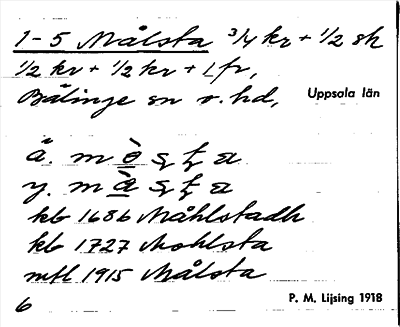 1-5 Målsta 3/4 kr + 1/2 sk
1/2 kr + 1/2 kr + 1 fr,
Bälinge sn o. hd, Uppsala län
ä. m
y. m
kb 1686 Måhlstadh
kb 1727 Mohlsta
mtl 1915 Målsta
6 P. M. Lijsing 1918